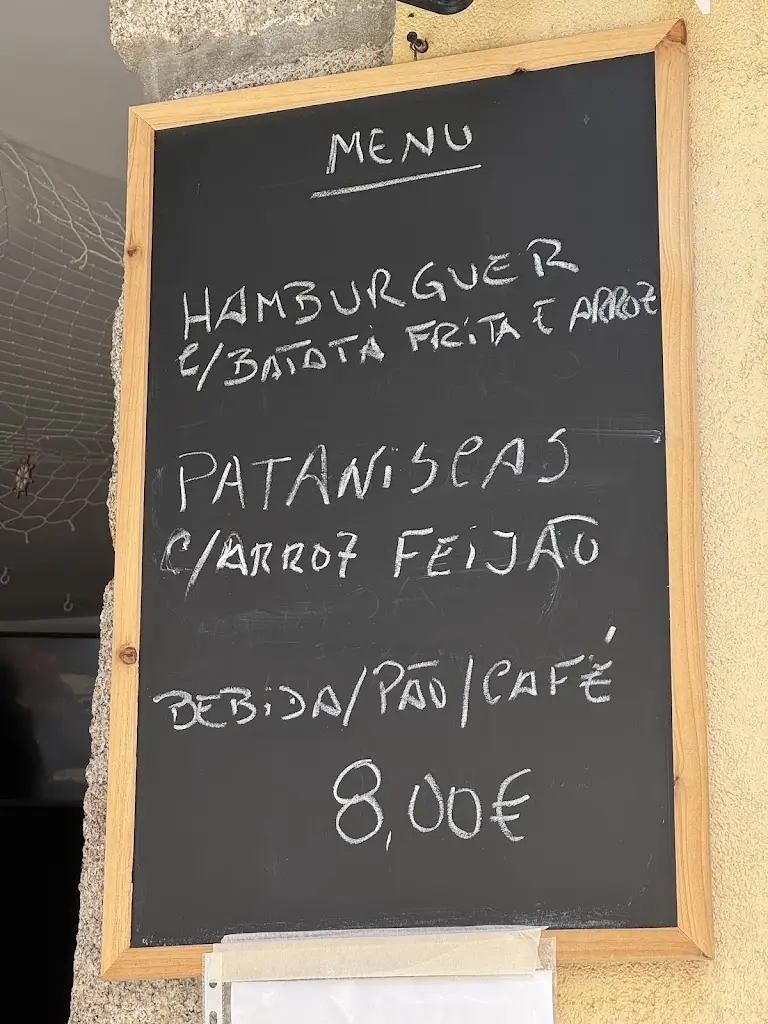 MENU
HAMBURGUER
C/BATATA FRITA E ARROZ
PATANISCAS
C/ARROZ FEIJÃO
BEBIDA/PÃO/CAFÉ
8,00€